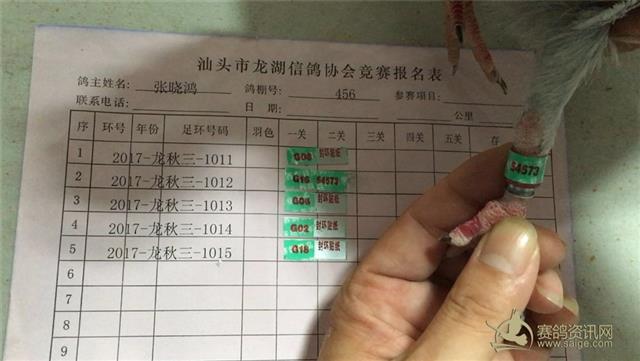 汕头市龙湖信鸽协会竞赛报名表
鸽主姓名: 张晓鸿 鸽棚号: 456 参赛项目:
联系电话: 日期: 公里
序 环号 年份 足环号码 羽色 一关 二关 三关 四关 五关 在
1 2017-龙秋三-1011 G08 封环贴纸
2 2017-龙秋三-1012 G16 54573
3 2017-龙秋三-1013 封环贴纸
4 2017-龙秋三-1014 G02 封环贴纸
5 2017-龙秋三-1015 G18 封环贴纸
6
7
8
9
54573
赛鸽资讯网
www.saige.com